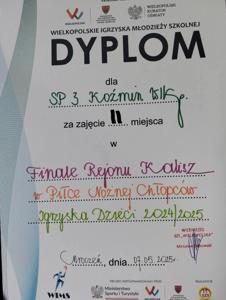 WIELKOPOLSKIE IGRZYSKA MŁODZIEŻY SZKOLNEJ
DYPLOM
dla
SP 3 Koźmin Wlkp.
za zajęcie II miejsca
w
Finale Rejonu Kalisz
w Piłce Nożnej Chłopców
Igrzyska Dzieci 2024/2025
Mroczeń, dnia 07.05.2025r.
WIMS
Ministerstwo
Sportu i Turystyki